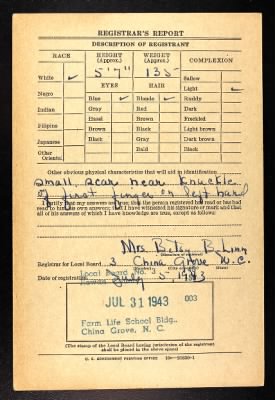 REGISTRAR'S REPORT
DESCRIPTION OF REGISTRANT
RACE
HEIGHT (Approx.)
WEIGHT (Approx.)
COMPLEXION
5'7"
135
White ✓
EYES
HAIR
Sallow
Light ✓
Negro
Blue ✓
Blonde ✓
Ruddy
Indian
Gray
Red
Dark
Hazel
Brown
Freckled
Filipino
Brown
Black
Light brown
Japanese
Black
Gray
Dark brown
Other
Oriental
Bald
Black
Other obvious physical characteristics that will aid in identification
small scar near knuckle
of first finger on left hand
I certify that my answers are true; that the person registered has read or has had
read to him his own answers; that I have witnessed his signature or mark and that
all of his answers of which I have knowledge are true, except as follows:
Mrs. Betsy B. Linn
Registrar for Local Board 3 China Grove N.C.
Local Board No. 3
Date of registration July 5, 1943
Rowan
JUL 31 1943
003
Farm Life School Bldg.,
China Grove, N. C.
(The stamp of the Local Board having jurisdiction of the registrant
shall be placed in the above space)
U. S. GOVERNMENT PRINTING OFFICE